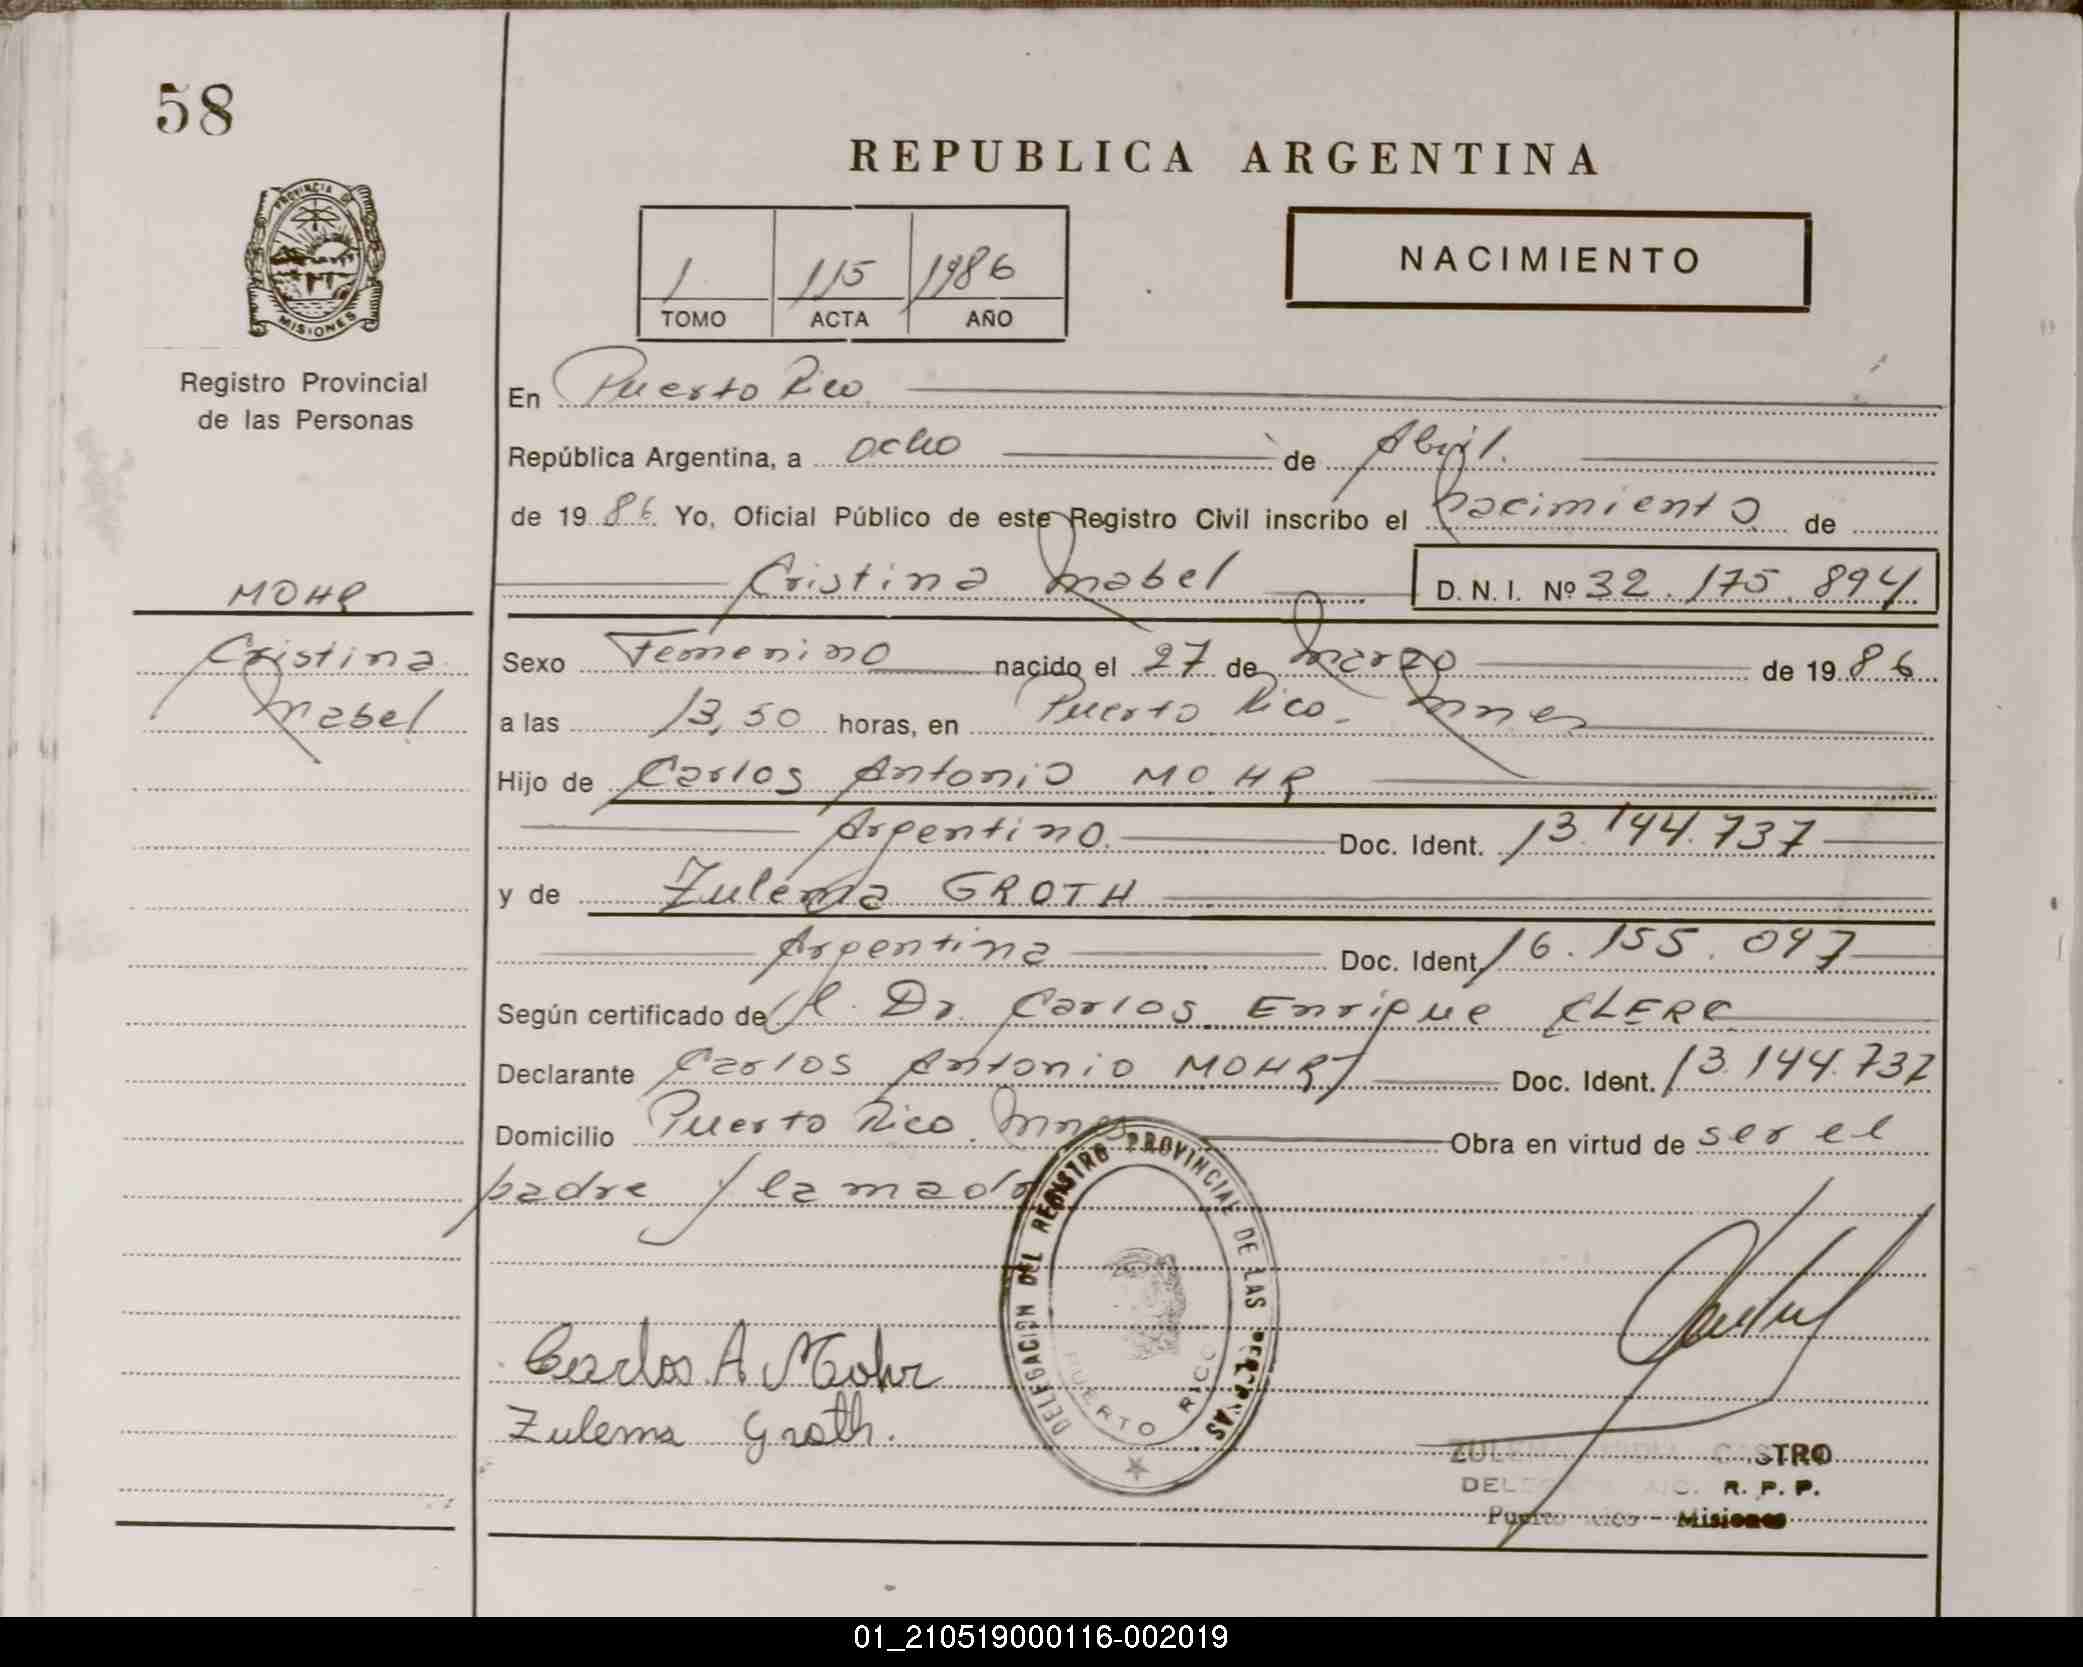 58
REPUBLICA ARGENTINA
PROVINCIA DE
MISIONES
1 115 1986
TOMO ACTA AÑO
NACIMIENTO
Registro Provincial
de las Personas
En Puerto Rico
República Argentina, a ocho de Abril.
de 19 86. Yo, Oficial Público de este Registro Civil inscribo el nacimiento de
Cristina Mabel D. N. I. Nº 32.175.894
MOHR
Cristina
Mabel
Sexo Femenino nacido el 27 de marzo de 19 86
a las 13,50 horas, en Puerto Rico. Mnes
Hijo de Carlos Antonio MOHR
Argentino. Doc. Ident. 13.144.737
y de Zulema GROTH
Argentina Doc. Ident. 16.155.047
Según certificado de el Dr. Carlos Enrique CLERC
Declarante Carlos Antonio MOHR Doc. Ident. 13.144.737
Domicilio Puerto Rico. Mnes Obra en virtud de ser el
padre y la madre
DELEGACION DEL REGISTRO PROVINCIAL DE LAS PERSONAS
PUERTO RICO
Carlos A Mohr
Zulema Groth.
ZULEMA CASTRO
R. P. P.
Puerto Rico - Misiones
01_210519000116-002019